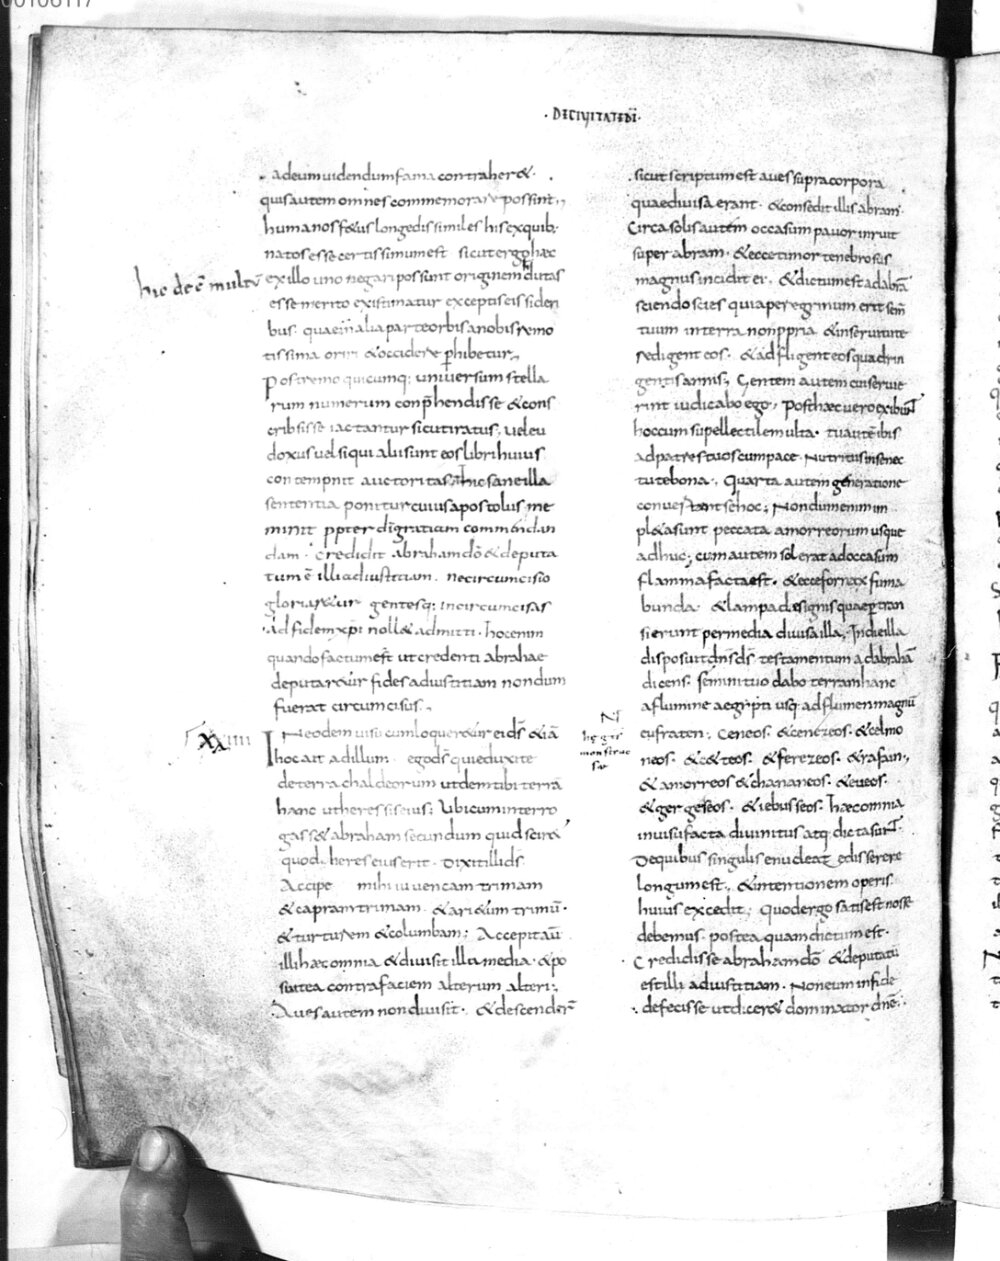 · DECIVITATEDĪ ·
adeum uidendum fama contraher&.
quis autem omnes commemorare possint,
humanos f&us longe dissimiles his ex quib;
natos esse certissimum est sicut ergo haec
hic deē multū
ex illo uno negari possunt originem
esse merito existimatur exceptis eis sideri
bus. quae in alia parte orbis anobis remo
tissima oriri & occidere phibetur,
Postremo quicumq; uniuersum stella
rum numerum conphendisse & cons
cribsisse iactantur sicut iratus; uel eu
doxus uel siqui alii sunt eos libri huius
contempnit auctoritas. hic sane illa
sententia ponitur cuius apostolus me
minit ppter di gratiam commendan
dam. Credidit abraham dō & deputa
tum ē illi ad iustitiam. ne circumcisio
gloriar&ur gentesq; incircumcisas
ad fidem xpi noll& admitti. hoc enim
quando factum est ut credenti abrahae
deputar&ur fides ad iustitiam nondum
fuerat circumcisus.,
XXIIII
In eodem uisu cum loquer&ur ei ds̄ &iā
hoc ait ad illum. ego ds̄ qui eduxi te
de terra chaldeorum ut dem tibi terrā
hanc ut heres sis eius; Ubi cum interro
gass& abraham secundum quid sciret
quod heres eius erit. Dixit illi ds̄
Accipe mihi iuuencam trimam
& capram trimam. & ari&um trimū.
& turturem & columbam; Accepit aū
illi haec omnia & diuisit illa media. & po
suit ea contra faciem alterum alteri;
Aues autem non diuisit. & descender̄
sicut scriptum est aues supra corpora
quae diuisa erant. & consedit illis abram.
Circa solis autem occasum pauor inruit
super abram. & ecce timor tenebrosus
magnus incidit ei. & dictum est ad abrā
sciendo scies quia peregrinum erit sem̄
tuum in terra non ppria & in seruitute
redigent eos. & adfligent eos quadrin
gentis annis; Gentem autem cui seruie
rint iudicabo ego, Post haec uero exibunt
hoc cum supellectile multa. tu autē ibis
ad patres tuos cum pace. Nutritus in senec
tute bona. Quarta autem generatione
conuertant se hoc; Nondum enim in
pl&a sunt peccata amorreorum usque
adhuc; cum autem sol erat ad occasum
flamma facta est. & ecce fornax fuma
bunda & lampades ignis quae ptran
sierunt per media diuisa illa; In die illa
disposuit dn̄s ds̄ testamentum ad abrahā
dicens. semini tuo dabo terram hanc
a flumine aegypti usq; ad flumen magnū
eufraten; Ceneos. & cenezeos. & celmo
neos. & c&teos. & ferezeos. & rafain,
& amorreos & chananeos. & eueos.
& gergeseos. & iebusseos. haec omnia
in uisu facta diuinitus atq; dicta sunt.
De quibus singulis enucleate edisserere
longum est., & intentionem operis
huius excedit; Quod ergo satis est nosse
debemus. postea quam dictum est.
Credidisse abraham dō & deputatū
est illi ad iustitiam. Non eum in fide
defecisse ut dicer& dominator dn̄e.